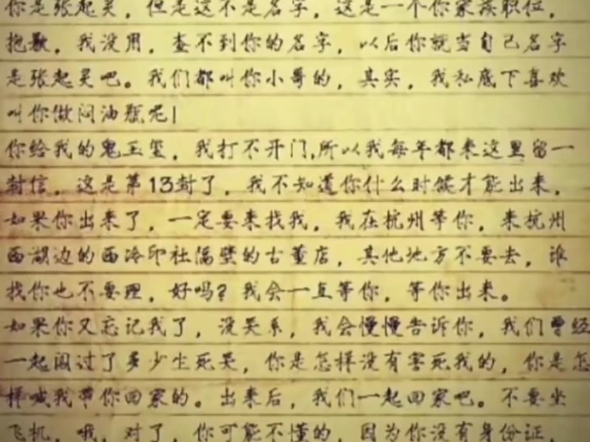 你是张起灵，但是这不是名字，这是一个你家族职位，
抱歉，我没用，查不到你的名字，以后你就当自己名字
是张起灵吧。我们都叫你小哥的，其实，我私底下喜欢
叫你做闷油瓶呢！
你给我的鬼玉玺，我打不开门，所以我每年都来这里留一
封信，这是第13封了，我不知道你什么时候才能出来，
如果你出来了，一定要来找我，我在杭州等你，来杭州
西湖边的西冷印社隔壁的古董店，其他地方不要去，谁
找你也不要理，好吗？我会一直等你，等你出来。
如果你又忘记我了，没关系，我会慢慢告诉你，我们曾经
一起闯过了多少生死关，你是怎样没有害死我的，你是怎
样喊我带你回家的。出来后，我们一起回家吧。不要坐
飞机，哦，对了，你可能不懂的，因为你没有身份证，